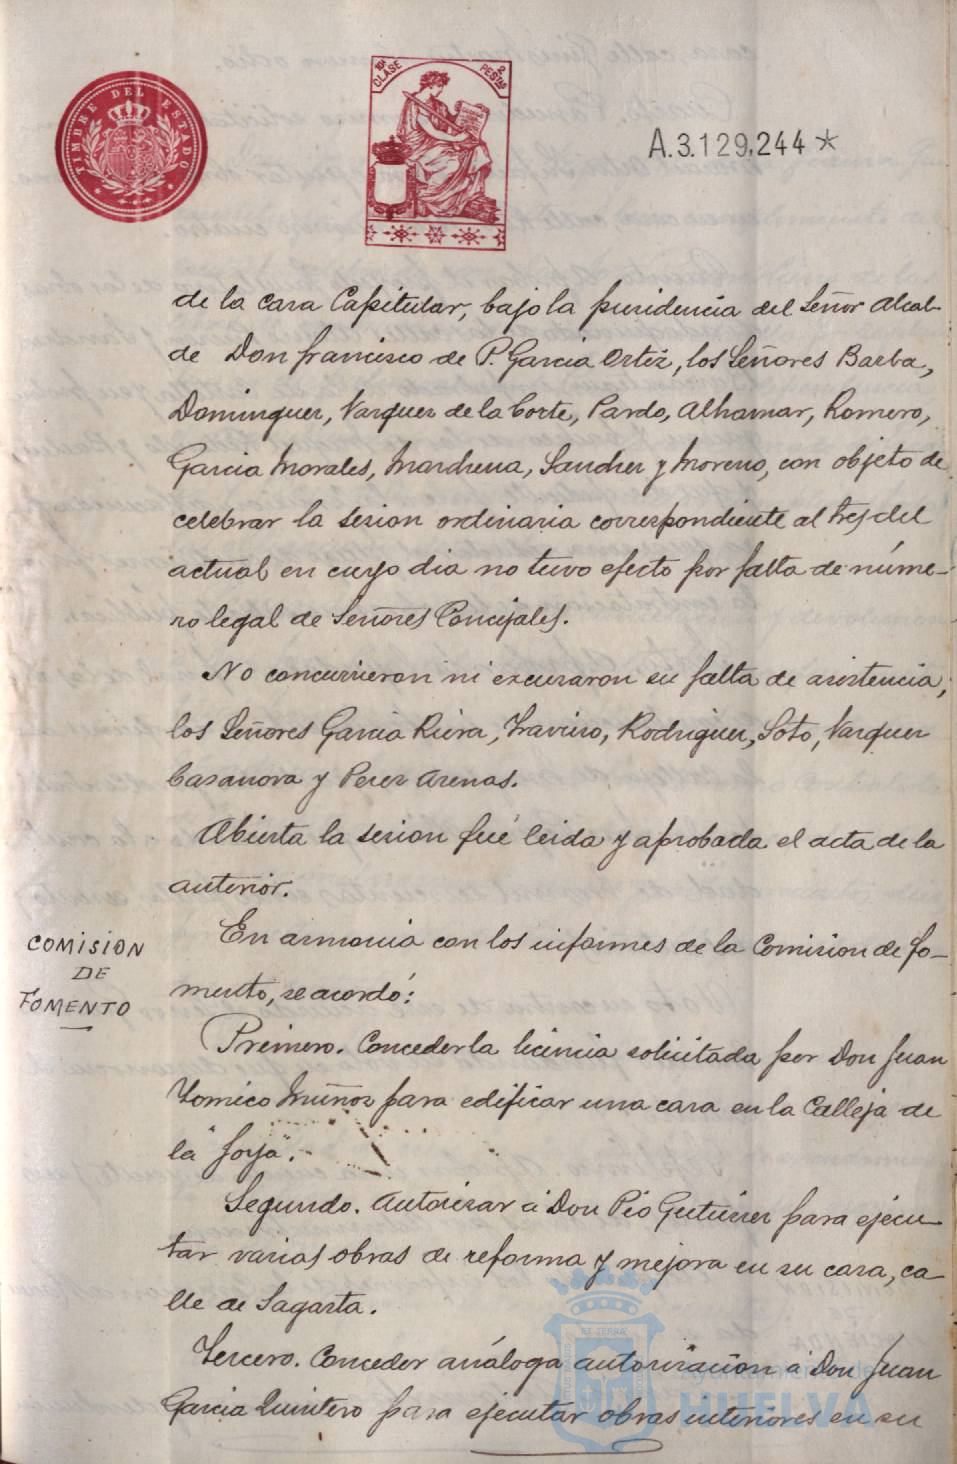 TIMBRE DEL ESTADO
10ª CLASE
2 PESTAS
A.3.129,244 *
de la casa Capitular, bajo la presidencia del Señor Alcal-
de Don Francisco de P. Garcia Ortiz, los Señores Barba,
Dominguez, Vazquez de la Corte, Pardo, Alhamar, Romero,
Garcia Morales, Marchena, Sanchez y Moreno, con objeto de
celebrar la sesion ordinaria correspondiente al tres del
actual en cuyo dia no tuvo efecto por falta de núme-
ro legal de Señores Concejales.
No concurrieron ni excusaron su falta de asistencia,
los Señores Garcia Riera, Traviso, Rodriguez, Soto, Vazquez
Casanova y Perez Arenas.
Abierta la sesion fué leida y aprobada el acta de la
anterior.
COMISION
DE
FOMENTO
En armonia con los informes de la Comision de Fo-
mento, se acordó:
Primero. Conceder la licencia solicitada por Don Juan
Tornico Muñoz para edificar una casa en la Calleja de
la "Joya".
Segundo. Autorizar á Don Pio Gutierrez para ejecu-
tar varias obras de reforma y mejora en su casa, ca-
lle de Sagasta.
Tercero. Conceder análoga autorizacion á Don Juan
Garcia Quintero para ejecutar obras interiores en su
Ayuntamiento de
HUELVA